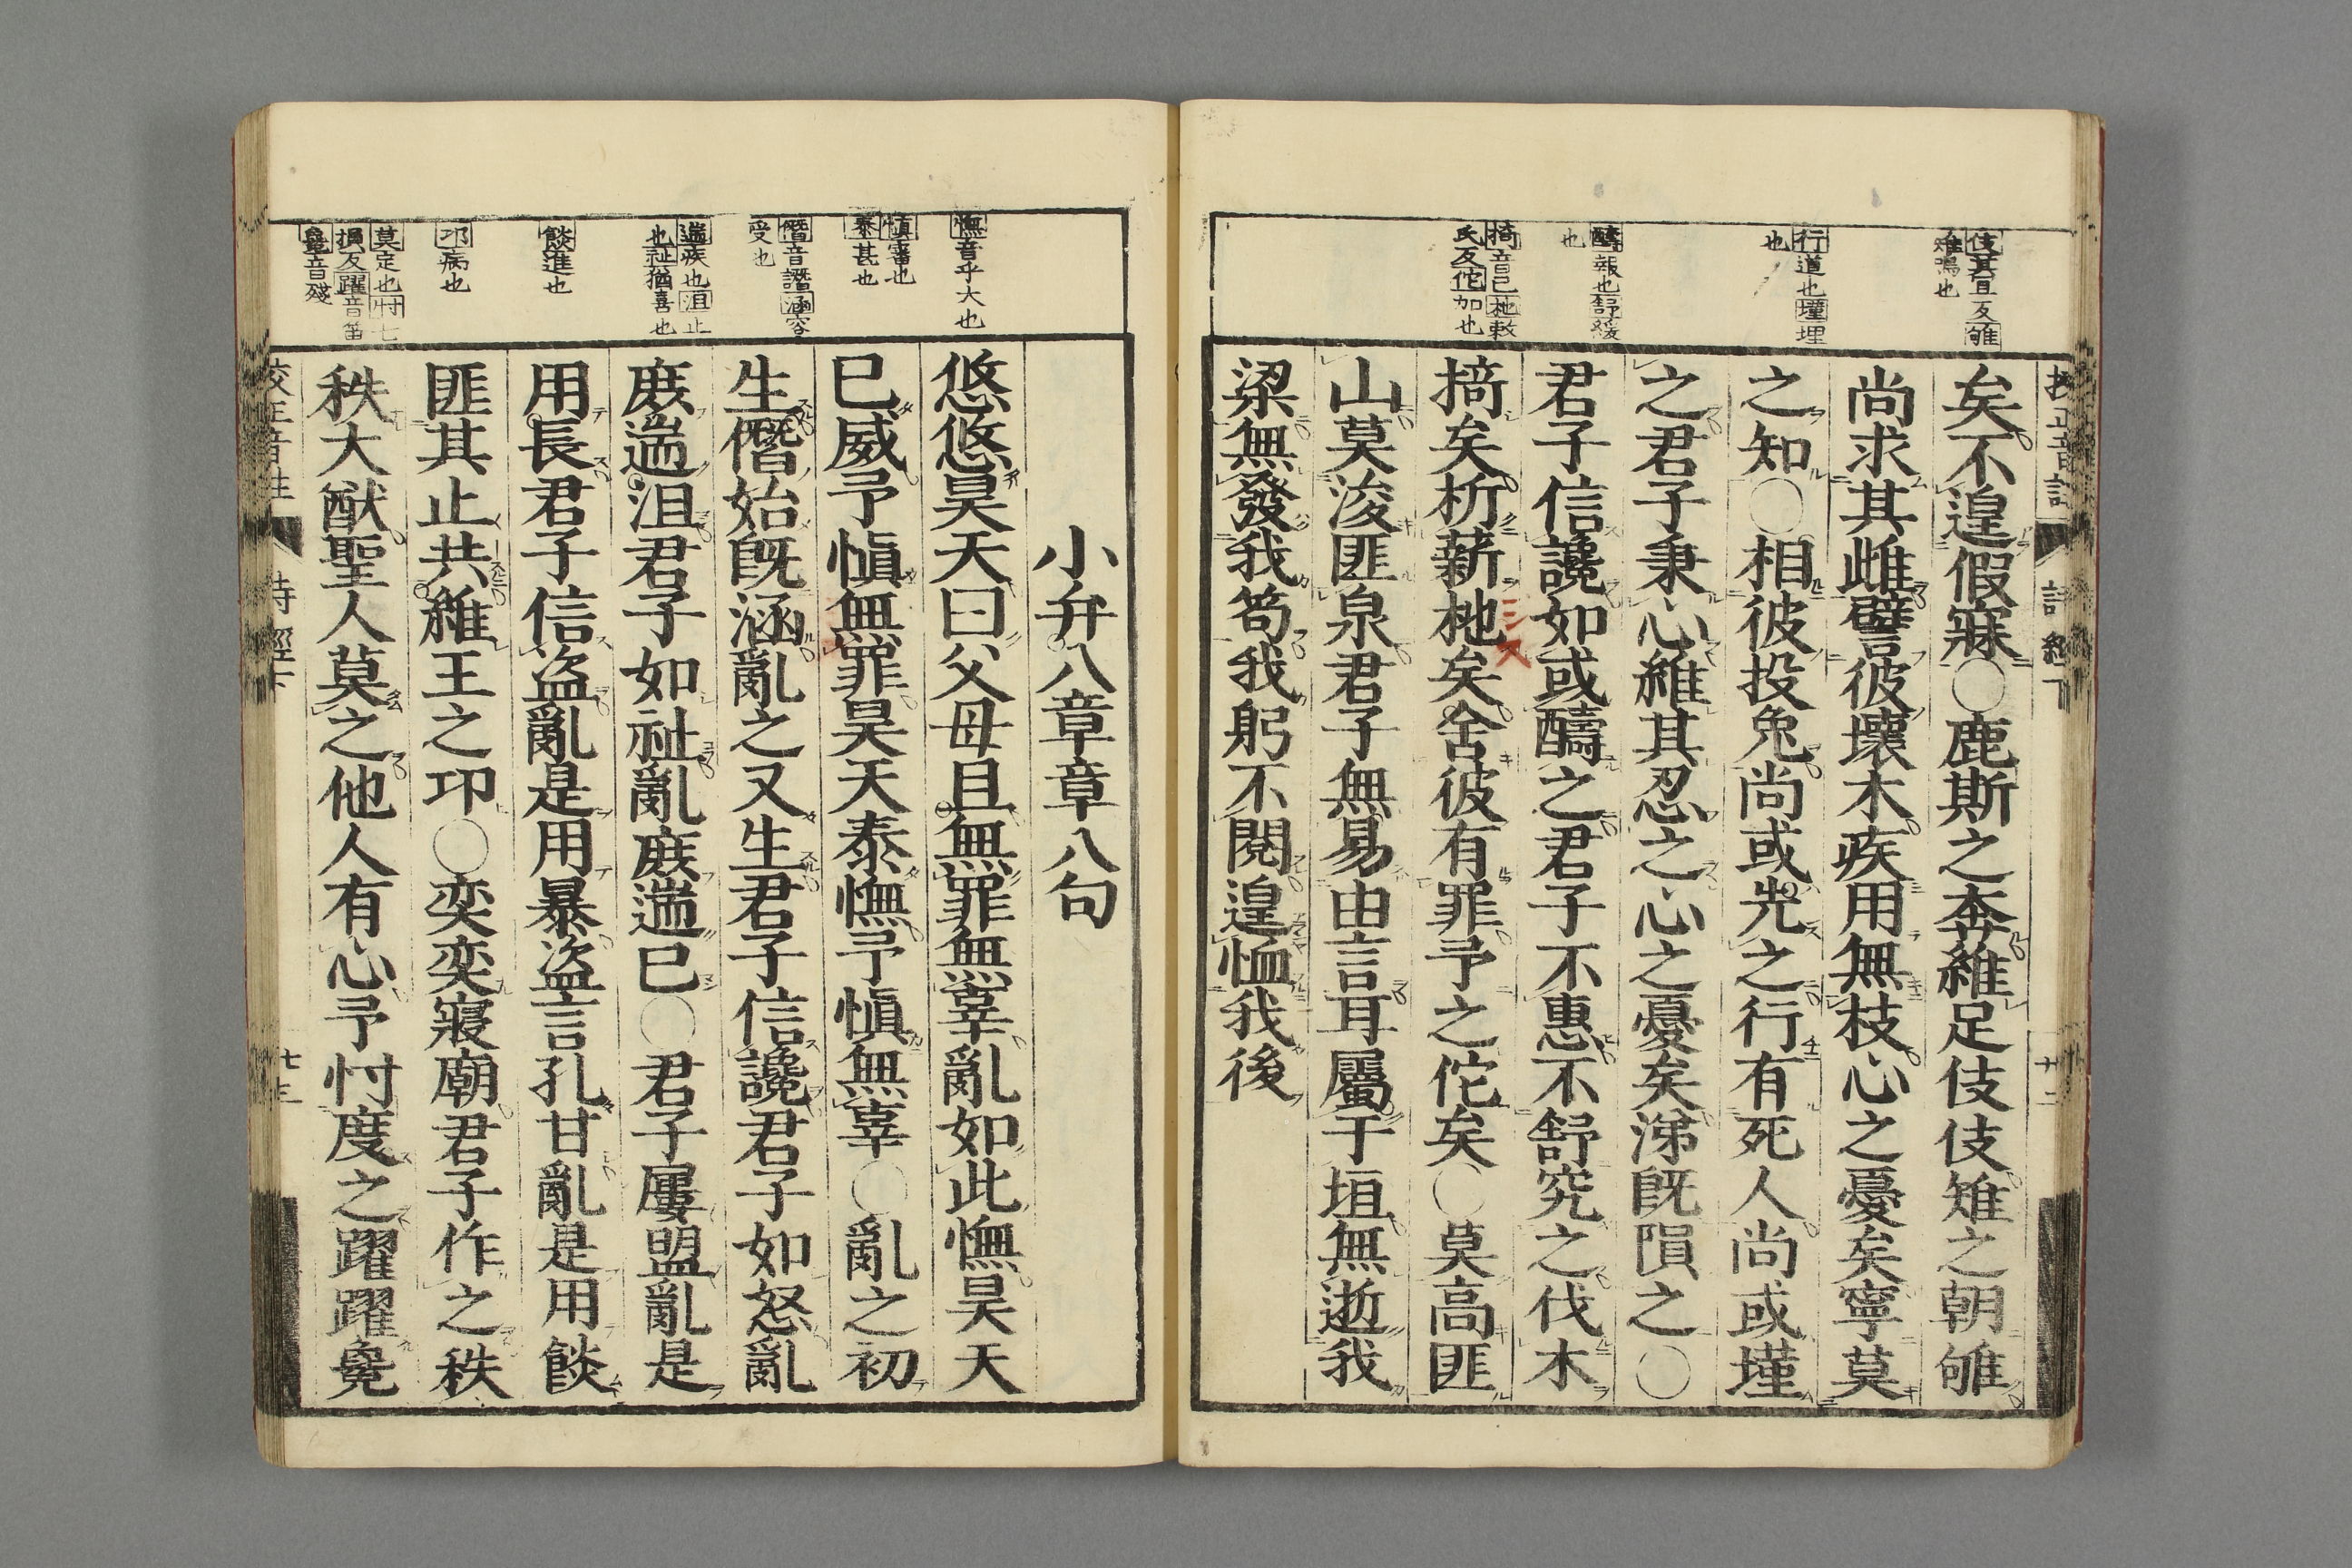 伎其宜反雊
雉鳴也
行道也墐埋
也
醻報也舒緩
也
掎音已杝敕
氏反佗加也
矣不遑假寐○鹿斯之奔維足伎伎雉之朝雊
尚求其雌譬彼壞木疾用無枝心之憂矣寧莫
之知○相彼投兔尚或先之行有死人尚或墐
之君子秉心維其忍之心之憂矣涕既隕之○
君子信讒如或醻之君子不惠不舒究之伐木
掎矣析薪杝矣舍彼有罪予之佗矣○莫高匪
山莫浚匪泉君子無易由言耳屬于垣無逝我
梁無發我笱我躬不閱遑恤我後
憮音乎大也
慎審也
泰甚也
僭音譖涵容
受也
遄疾也沮止
也祉猶喜也
餤進也
邛病也
莫定也忖七
損反躍音笛
毚音殘
小弁八章章八句
悠悠昊天曰父母且無罪無辜亂如此憮昊天
已威予慎無罪昊天泰憮予慎無辜○亂之初
生僭始既涵亂之又生君子信讒君子如怒亂
庻遄沮君子如祉亂庻遄已○君子屢盟亂是
用長君子信盜亂是用暴盜言孔甘亂是用餤
匪其止共維王之邛○奕奕寢廟君子作之秩
秩大猷聖人莫之他人有心予忖度之躍躍毚
詩經下